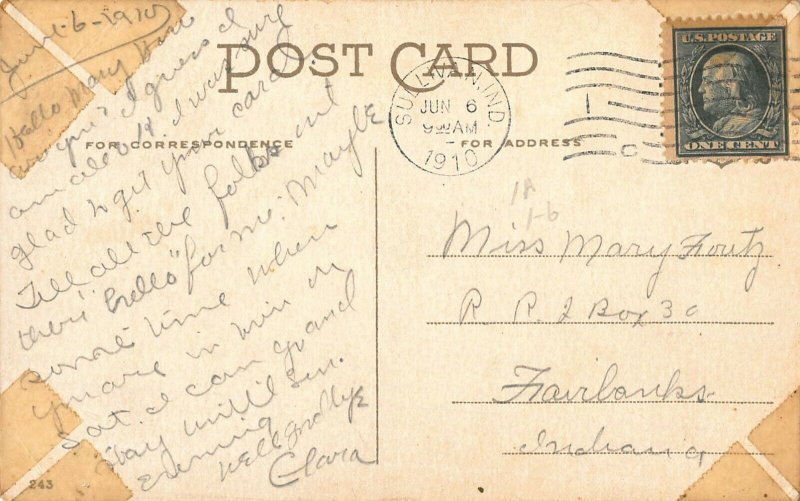 June 6-1910
Hello Mary How
are you? I guess I
am all O.K. I was very
glad to get your card
Tell all the folks out
there "hello" for me. Maybe
some time when
you are in town on
Sat. I can go and
stay until Sun.
evening
Well goodbye
Clara
POST CARD
FOR CORRESPONDENCE
FOR ADDRESS
SULLIVAN, IND.
JUN 6
9 AM
1910
U.S. POSTAGE
ONE CENT
1A
1-6
Miss Mary Foutz
R R 2 Box 30
Fairbanks
Indiana
243